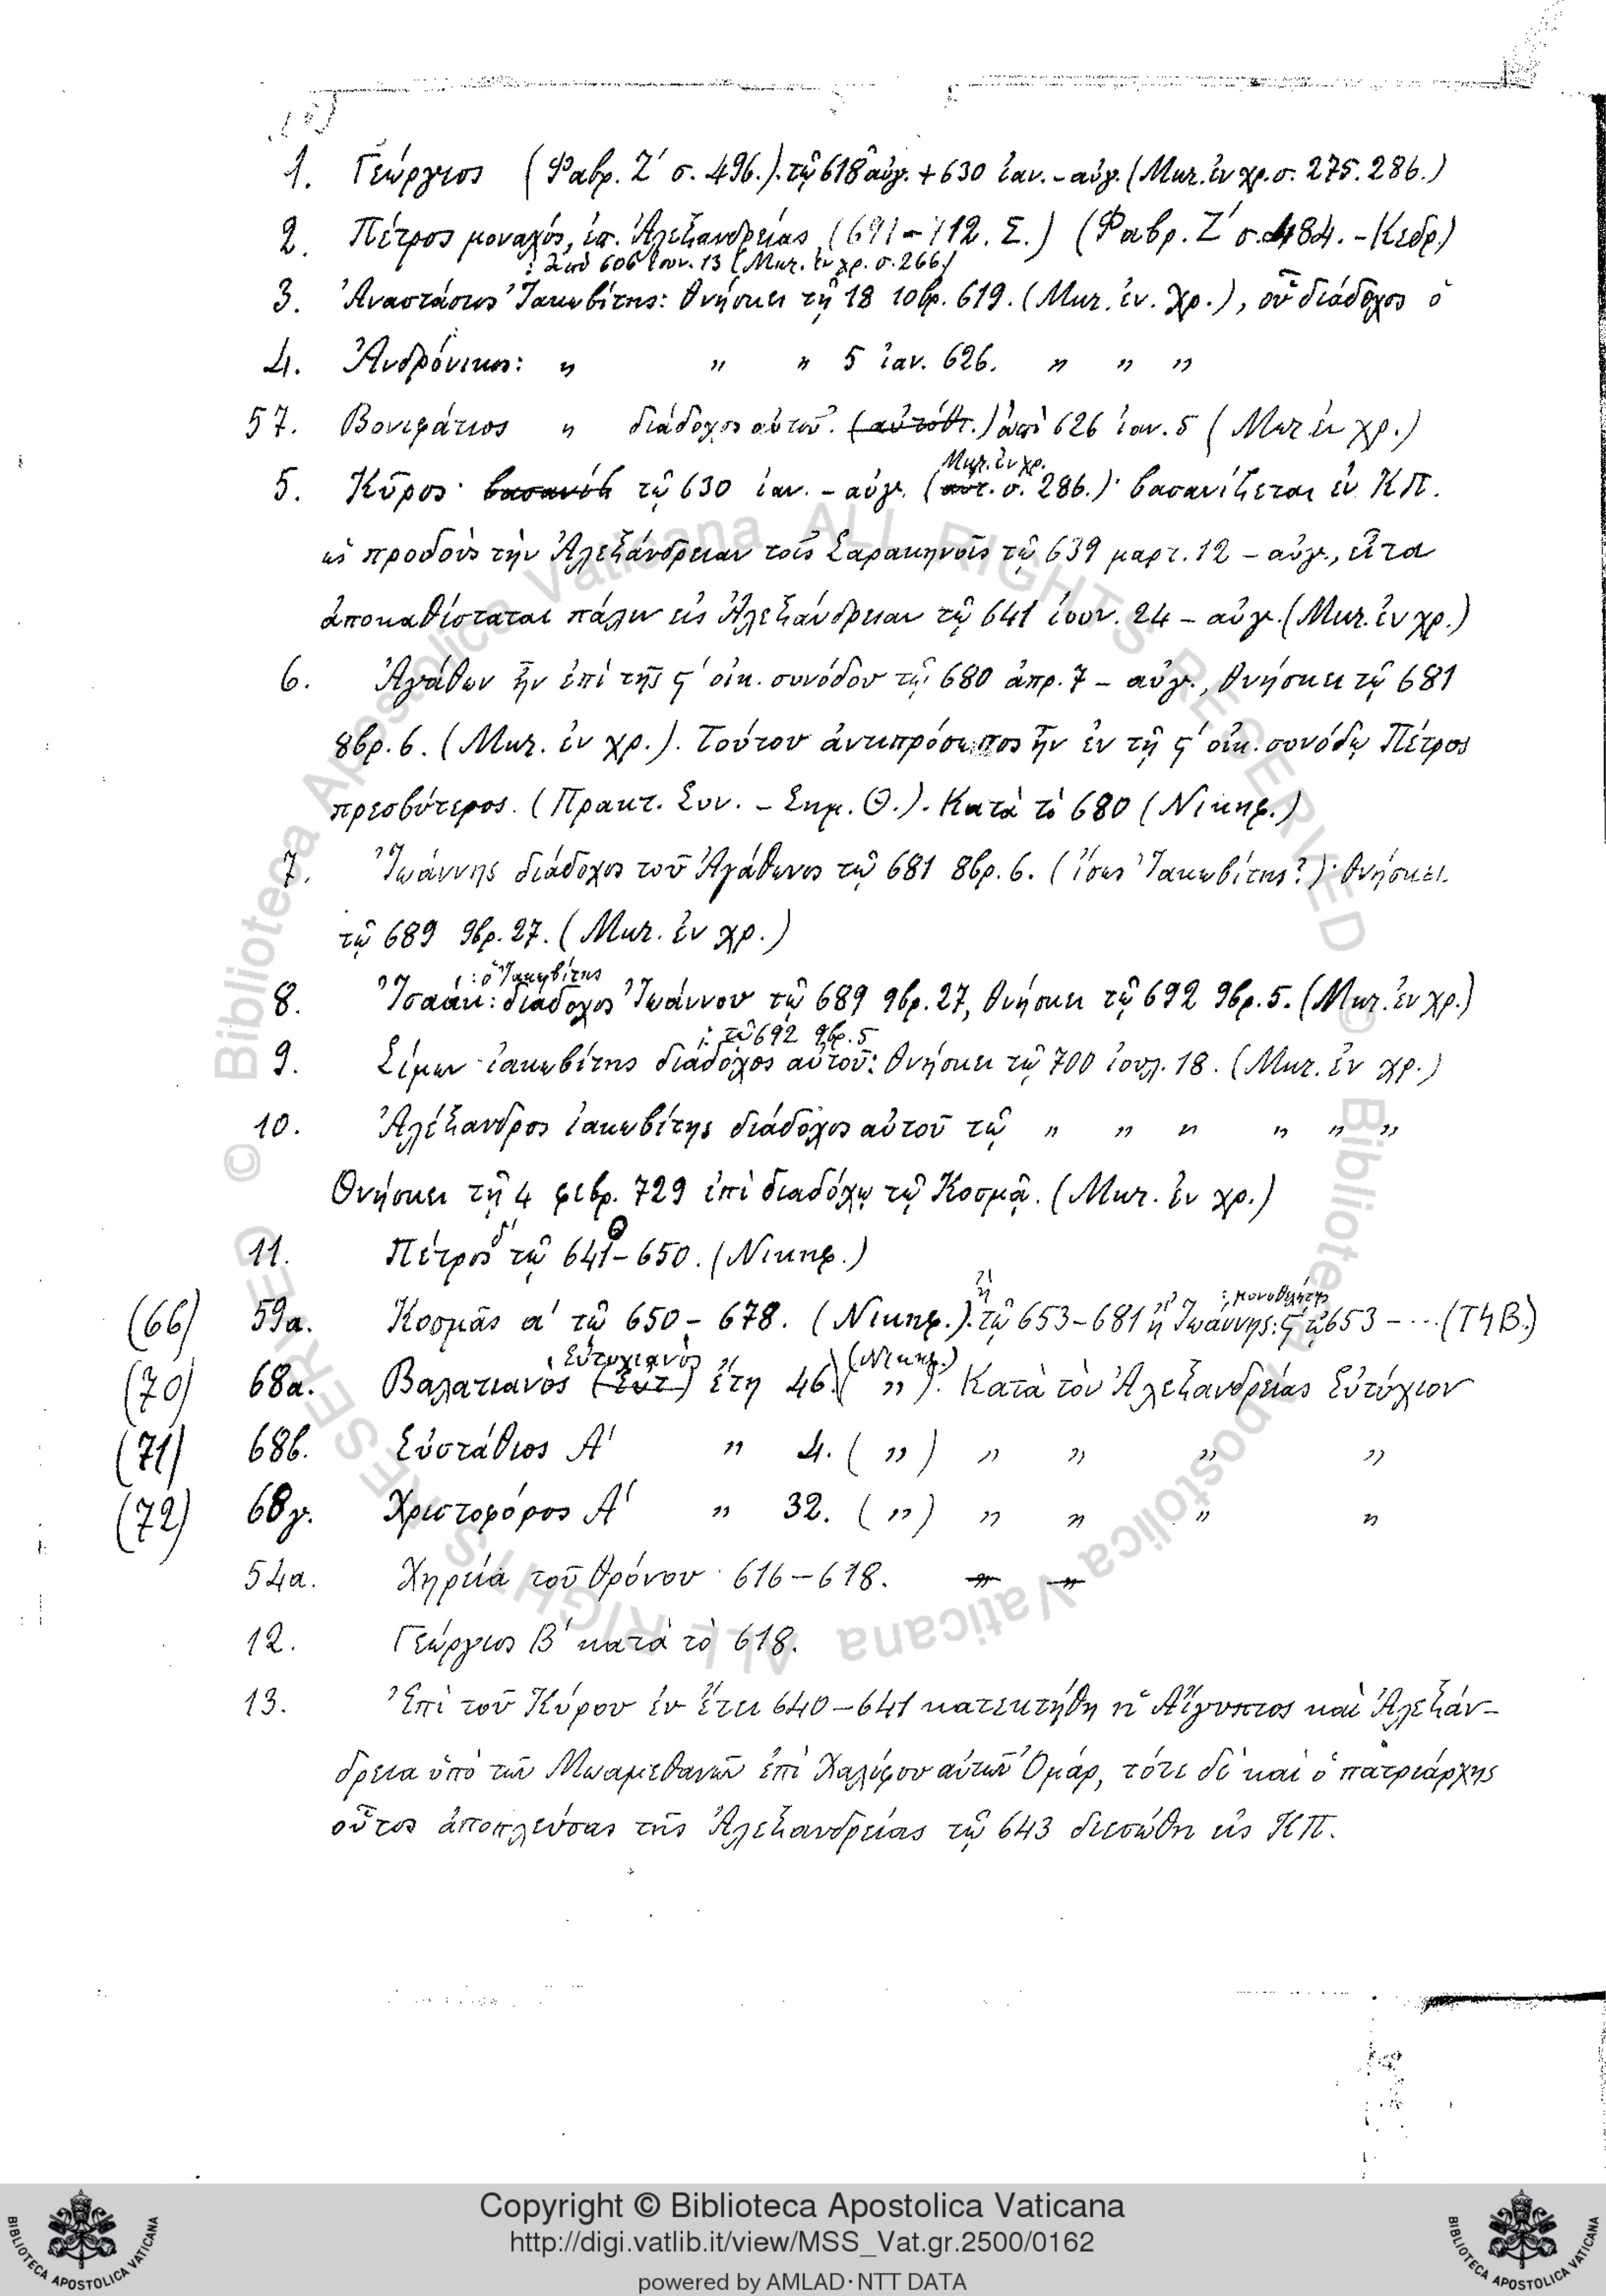 1. Γεώργιος (Φαβρ. Ζ΄ σ. 496.). τῷ 618 αὐγ. + 630 ἰαν. – αὐγ. (Μικ. ἐν χρ. σ. 275. 286.)
2. Πέτρος μοναχός, ἐπ. Ἀλεξανδρείας (691 – 712. Σ.) (Φαβρ. Ζ΄ σ. 484. – Κεδρ.)
: ἀπὸ 606 ἰουν. 13 (Μικ. ἐν χρ. σ. 266)
3. Ἀναστάσιος Ἰακωβίτης: θνήσκει τῇ 18 10βρ. 619. (Μικ. ἐν. χρ.), οὗ διάδοχος ὁ
4. Ἀνδρόνικος: „ „ „ 5 ἰαν. 626. „ „ „
57. Βονιφάτιος „ διάδοχος αὐτοῦ. (αὐτόθ.) ἀπὸ 626 ἰαν. 5 (Μικ ἐν χρ.)
Μικ. ἐν χρ.
5. Κῦρος· βασανίζ τῷ 630 ἰαν. – αὐγ. (αὐτ. σ. 286.)· βασανίζεται ἐν ΚΠ.
ὡς προδοὺς τὴν Ἀλεξάνδρειαν τοῖς Σαρακηνοῖς τῷ 639 μαρτ. 12 – αὐγ., εἶτα
ἀποκαθίσταται πάλιν εἰς Ἀλεξάνδρειαν τῷ 641 ἰουν. 24 – αὐγ. (Μικ. ἐν χρ.)
6. Ἀγάθων ἦν ἐπὶ τῆς ς΄ οἰκ. συνόδου τῷ 680 ἀπρ. 7 – αὐγ., θνήσκει τῷ 681
8βρ. 6. (Μικ. ἐν χρ.). Τούτου ἀντιπρόσωπος ἦν ἐν τῇ ς΄ οἰκ. συνόδῳ Πέτρος
πρεσβύτερος. (Πρακτ. Συν. – Σημ. Θ.). Κατὰ τὸ 680 (Νικηφ.)
7. Ἰωάννης διάδοχος τοῦ Ἀγάθωνος τῷ 681 8βρ. 6. (ἴσως Ἰακωβίτης?)· θνήσκει.
τῷ 689 9βρ. 27. (Μικ. ἐν χρ.)
: ὁ Ἰακωβίτης
8. Ἰσαάκ: διάδοχος Ἰωάννου τῷ 689 9βρ. 27, θνήσκει τῷ 692 9βρ. 5. (Μικ. ἐν χρ.)
: τῷ 692 9βρ. 5
9. Σίμων ἰακωβίτης διάδοχος αὐτοῦ: θνήσκει τῷ 700 ἰουλ. 18. (Μικ. ἐν χρ.)
10. Ἀλέξανδρος ἰακωβίτης διάδοχος αὐτοῦ τῷ „ „ „ „ „ „
Θνήσκει τῇ 4 φεβρ. 729 ἐπὶ διαδόχῳ τῷ Κοσμᾷ. (Μικ. ἐν χρ.)
11. Πέτρος δ΄ τῷ 641 – 650. (Νικηφ.)
: μονοθελήτης
(66) 59α. Κοσμᾶς α΄ τῷ 650 – 678. (Νικηφ.). ἢ τῷ 653 – 681 ἢ Ἰωάννης: ς΄ τῷ 653 – ... (ΤЧΒ.)
Εὐτυχιανὸς (Νικηφ.)
(70) 68α. Βαλατιανὸς (Εὐτ.) ἔτη 46. („). Κατὰ τὸν Ἀλεξανδρείας Εὐτύχιον
(71) 68β. Εὐστάθιος Α΄ „ 4. („) „ „ „ „
(72) 68γ. Χριστοφόρος Α΄ „ 32. („) „ „ „ „
54α. Χηρεία τοῦ θρόνου 616 – 618. „ „
12. Γεώργιος Β΄ κατὰ τὸ 618.
13. Ἐπὶ τοῦ Κύρου ἐν ἔτει 640 – 641 κατεκτήθη ἡ Αἴγυπτος καὶ Ἀλεξάν-
δρεια ὑπὸ τῶν Μωαμεθανῶν ἐπὶ Χαλίφου αὐτῶν Ὀμάρ, τότε δὲ καὶ ὁ πατριάρχης
οὗτος ἀποπλεύσας τῆς Ἀλεξανδρείας τῷ 643 διεσώθη εἰς ΚΠ.
© Biblioteca Apostolica Vaticana ALL RIGHTS RESERVED
Copyright © Biblioteca Apostolica Vaticana
http://digi.vatlib.it/view/MSS_Vat.gr.2500/0162
powered by AMLAD·NTT DATA
BIBLIOTECA APOSTOLICA VATICANA
BIBLIOTECA APOSTOLICA VATICANA